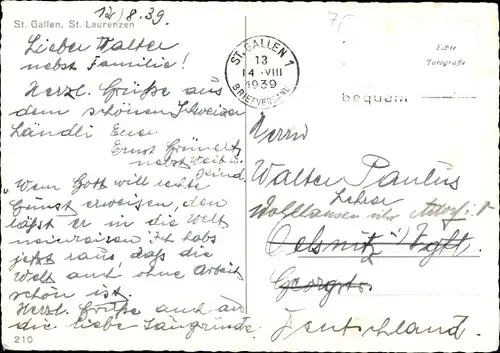 12/8.39
St. Gallen, St. Laurenzen
Lieber Walter
nebst Familie!
Herzl. Grüße aus
dem schönen Schweizer
Ländli Euer
Ernst Grünert
nebst Weib u.
Kind.
"Wem Gott will rechte
Gunst erweisen, den
läßt er in die Welt
Ich hab
jetzt raus, daß die
Welt auch ohne Arbeit
schön ist.
Herzl. Grüße auch an
die liebe
210
ST. GALLEN 1
13
14·VIII
1939
BRIEFVERSAND
7,-
Echte
Fotografie
bequem
Herrn
Walter Paulus
Lehrer
Wohlhausen über
Oelsnitz i/Vgtl.
Georgstr.
Deutschland.